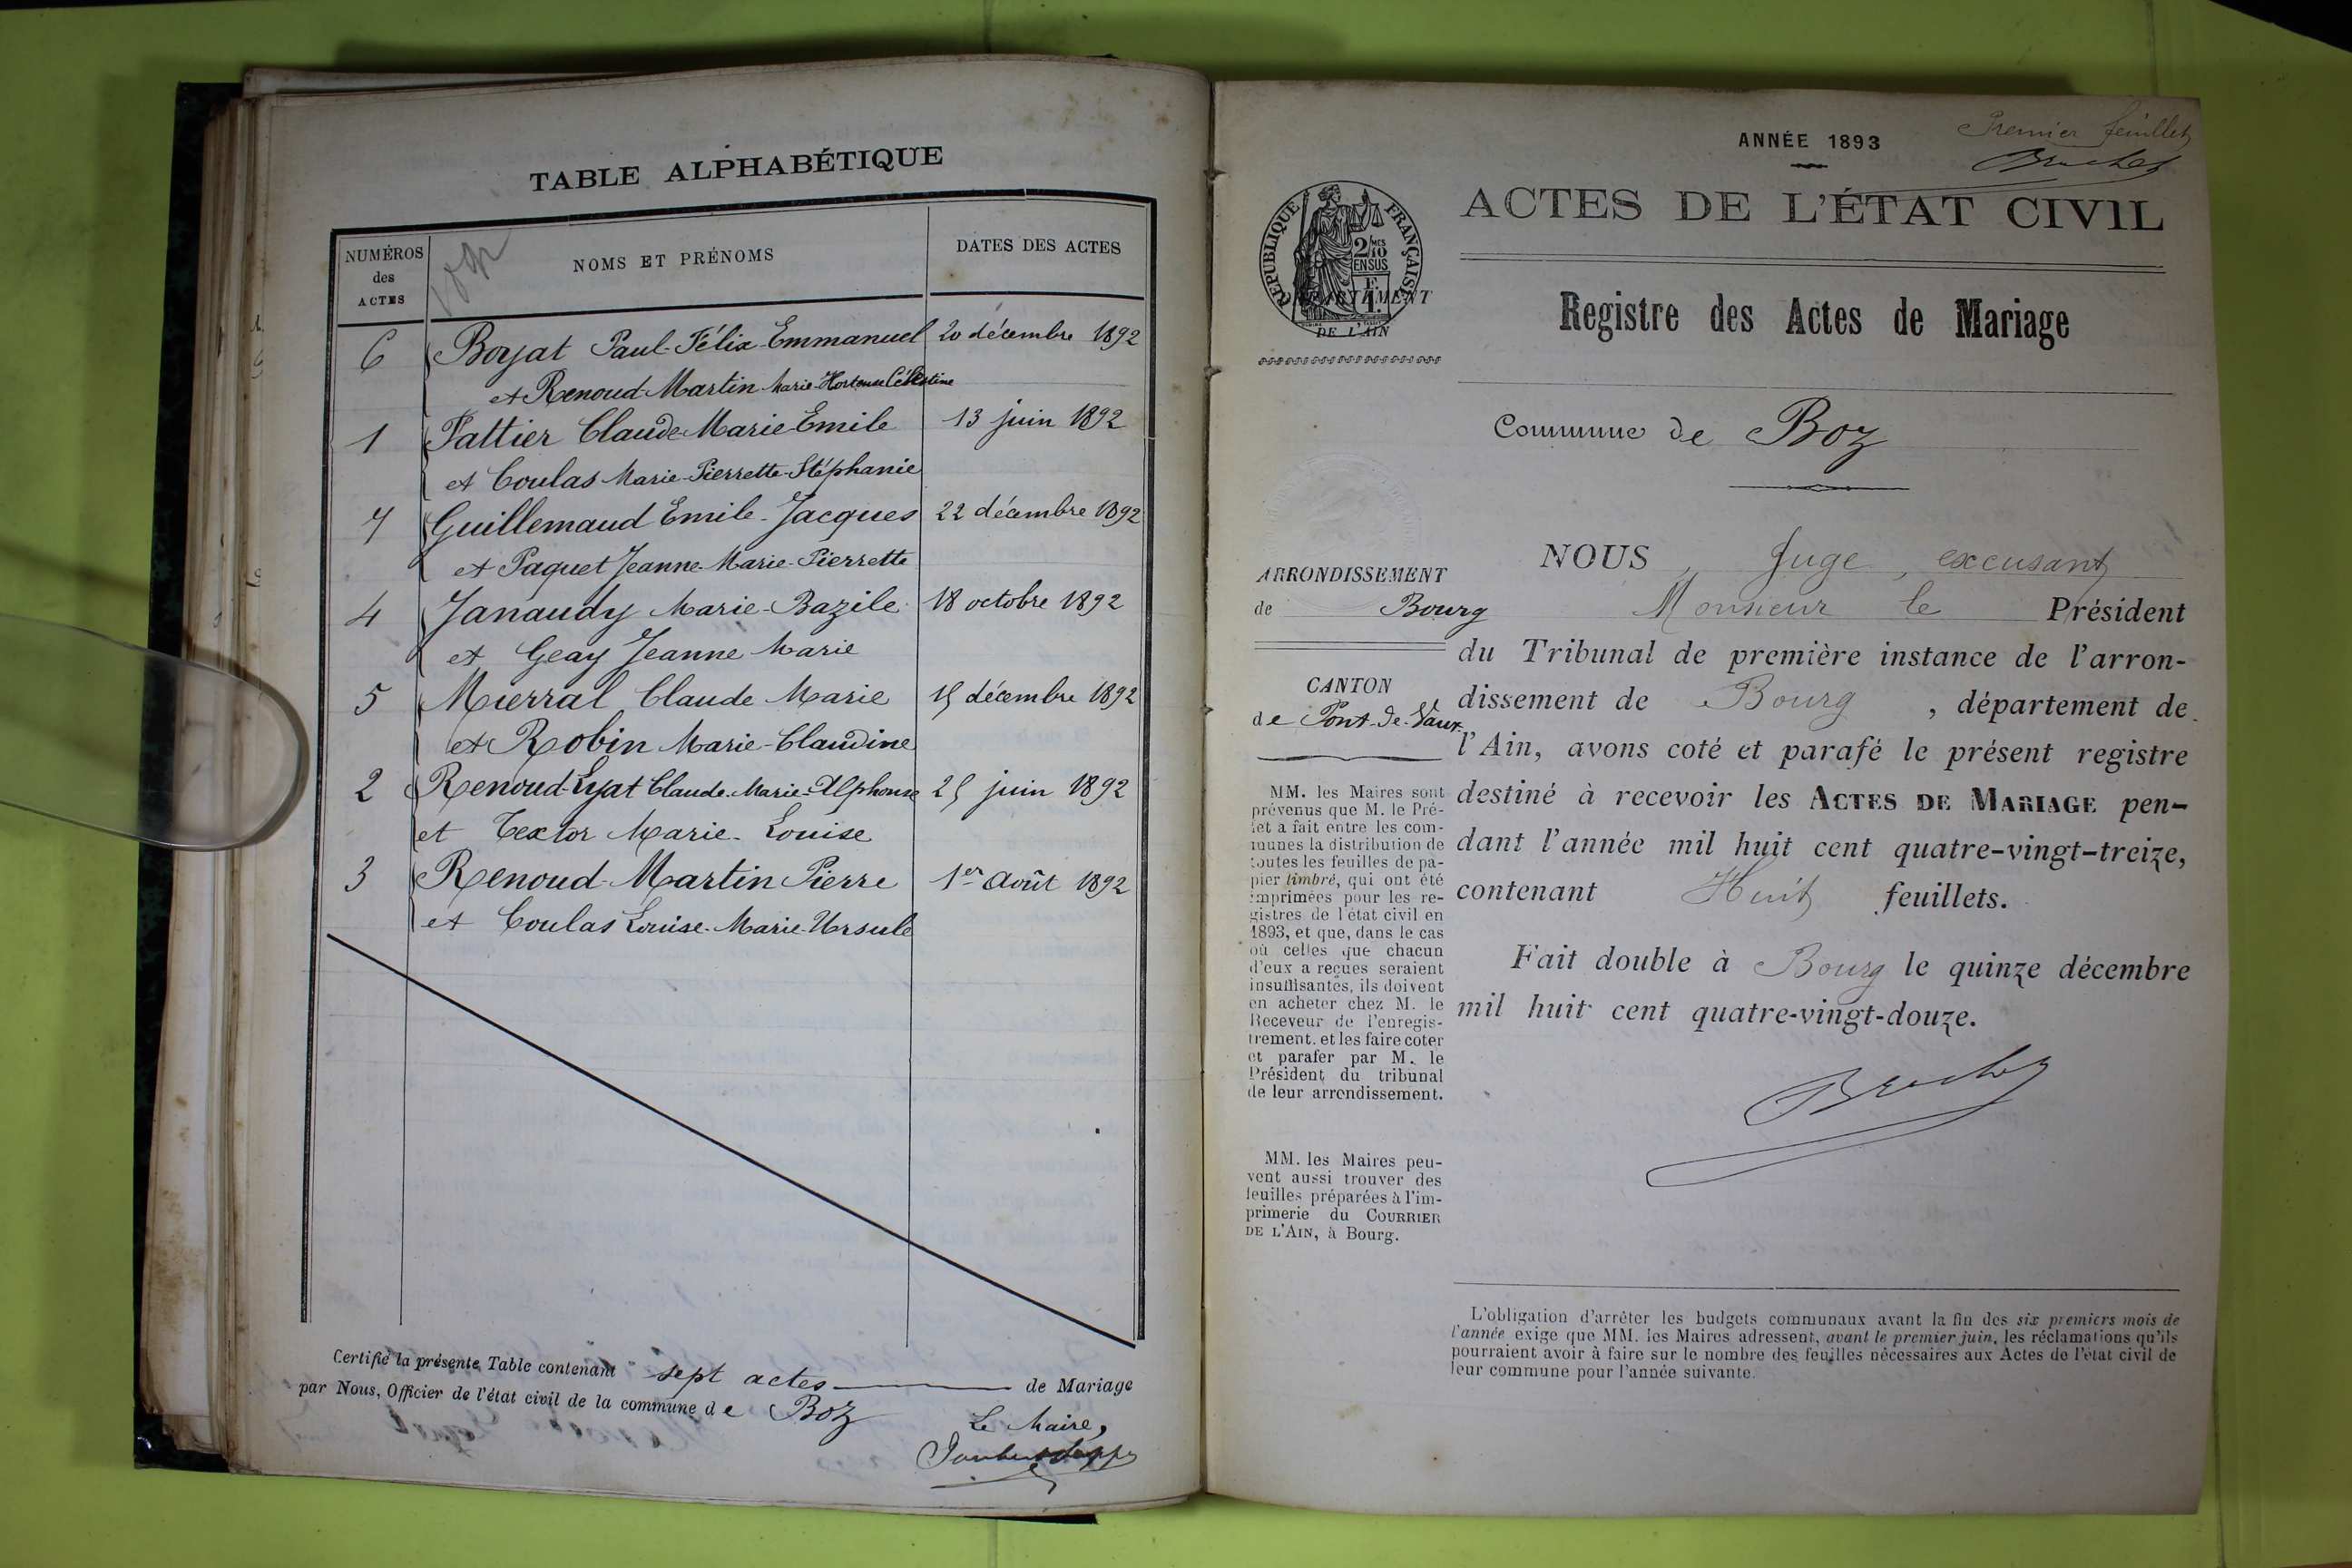 TABLE ALPHABÉTIQUE
NUMÉROS
des
ACTES
NOMS ET PRÉNOMS
DATES DES ACTES
6 Boyat Paul-Félix-Emmanuel 20 décembre 1892
et Renoud-Martin Marie-Hortense Célestine
1 Pattier Claude-Marie-Emile 13 juin 1892
et Coulas Marie-Pierrette-Stéphanie
7 Guillemaud Emile-Jacques 22 décembre 1892
et Paquet Jeanne-Marie-Pierrette
4 Janaudy Marie-Bazile 18 octobre 1892
et Geay Jeanne Marie
5 Mierral Claude Marie 15 décembre 1892
et Robin Marie-Claudine
2 Renoud-Lyat Claude-Marie-Alphonse 25 juin 1892
et Textor Marie-Louise
3 Renoud-Martin Pierre 1er Août 1892
et Coulas Louise-Marie-Ursule
Certifié la présente Table contenant sept actes de Mariage
par Nous, Officier de l'état civil de la commune de Boz
Le Maire,
Premier feuillet
ANNÉE 1893
ACTES DE L'ÉTAT CIVIL
RÉPUBLIQUE FRANÇAISE
2/10 MES
EN SUS
DÉPARTEMENT
DE L'AIN
Registre des Actes de Mariage
Commune de Boz
ARRONDISSEMENT
de Bourg
CANTON
de Pont-de-Vaux
MM. les Maires sont
prévenus que M. le Pré-
fet a fait entre les com-
munes la distribution de
toutes les feuilles de pa-
pier timbré, qui ont été
imprimées pour les re-
gistres de l'état civil en
1893, et que, dans le cas
où celles que chacun
d'eux a reçues seraient
insuffisantes, ils doivent
en acheter chez M. le
Receveur de l'enregis-
trement. et les faire coter
et parafer par M. le
Président du tribunal
de leur arrondissement.
MM. les Maires peu-
vent aussi trouver des
feuilles préparées à l'im-
primerie du COURRIER
DE L'AIN, à Bourg.
NOUS, Juge, excusant
Monsieur le Président
du Tribunal de première instance de l'arron-
dissement de Bourg, département de
l'Ain, avons coté et parafé le présent registre
destiné à recevoir les ACTES DE MARIAGE pen-
dant l'année mil huit cent quatre-vingt-treize,
contenant Huit feuillets.
Fait double à Bourg le quinze décembre
mil huit cent quatre-vingt-douze.
L'obligation d'arrêter les budgets communaux avant la fin des six premiers mois de
l'année exige que MM. les Maires adressent, avant le premier juin, les réclamations qu'ils
pourraient avoir à faire sur le nombre des feuilles nécessaires aux Actes de l'état civil de
leur commune pour l'année suivante.